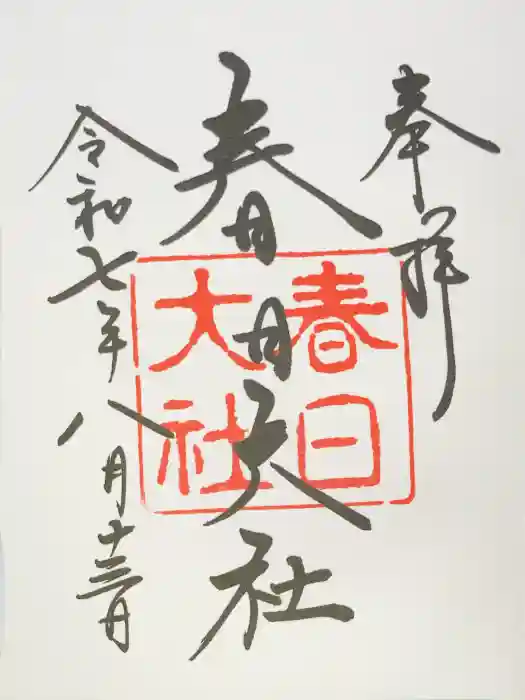 奉拝
春日大社
春日
大社
令和七年八月十三日